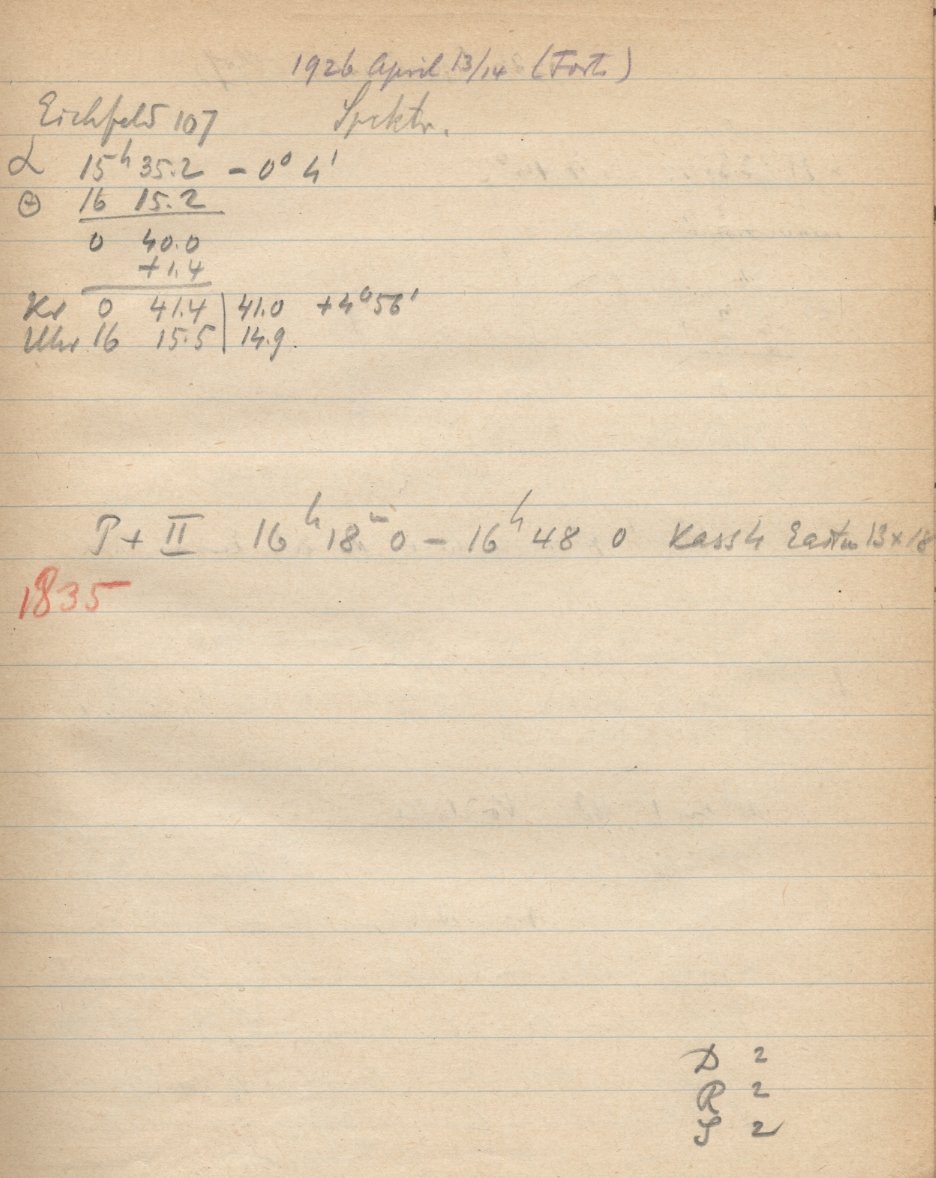 1926 April 13/14 (Forts)
Eichfeld 107 Spektr.
α 15h 35.2 - 0° 4'
16 15.2
0 40.0
+1.4
Kr 0 41.4 | 41.0 +4°56'
Uhr 16 15.5 | 14.9
P + II 16h 18m 0 - 16h 48 0 Kass 4 Eastm 13×18
1835
D 2
R 2
S 2